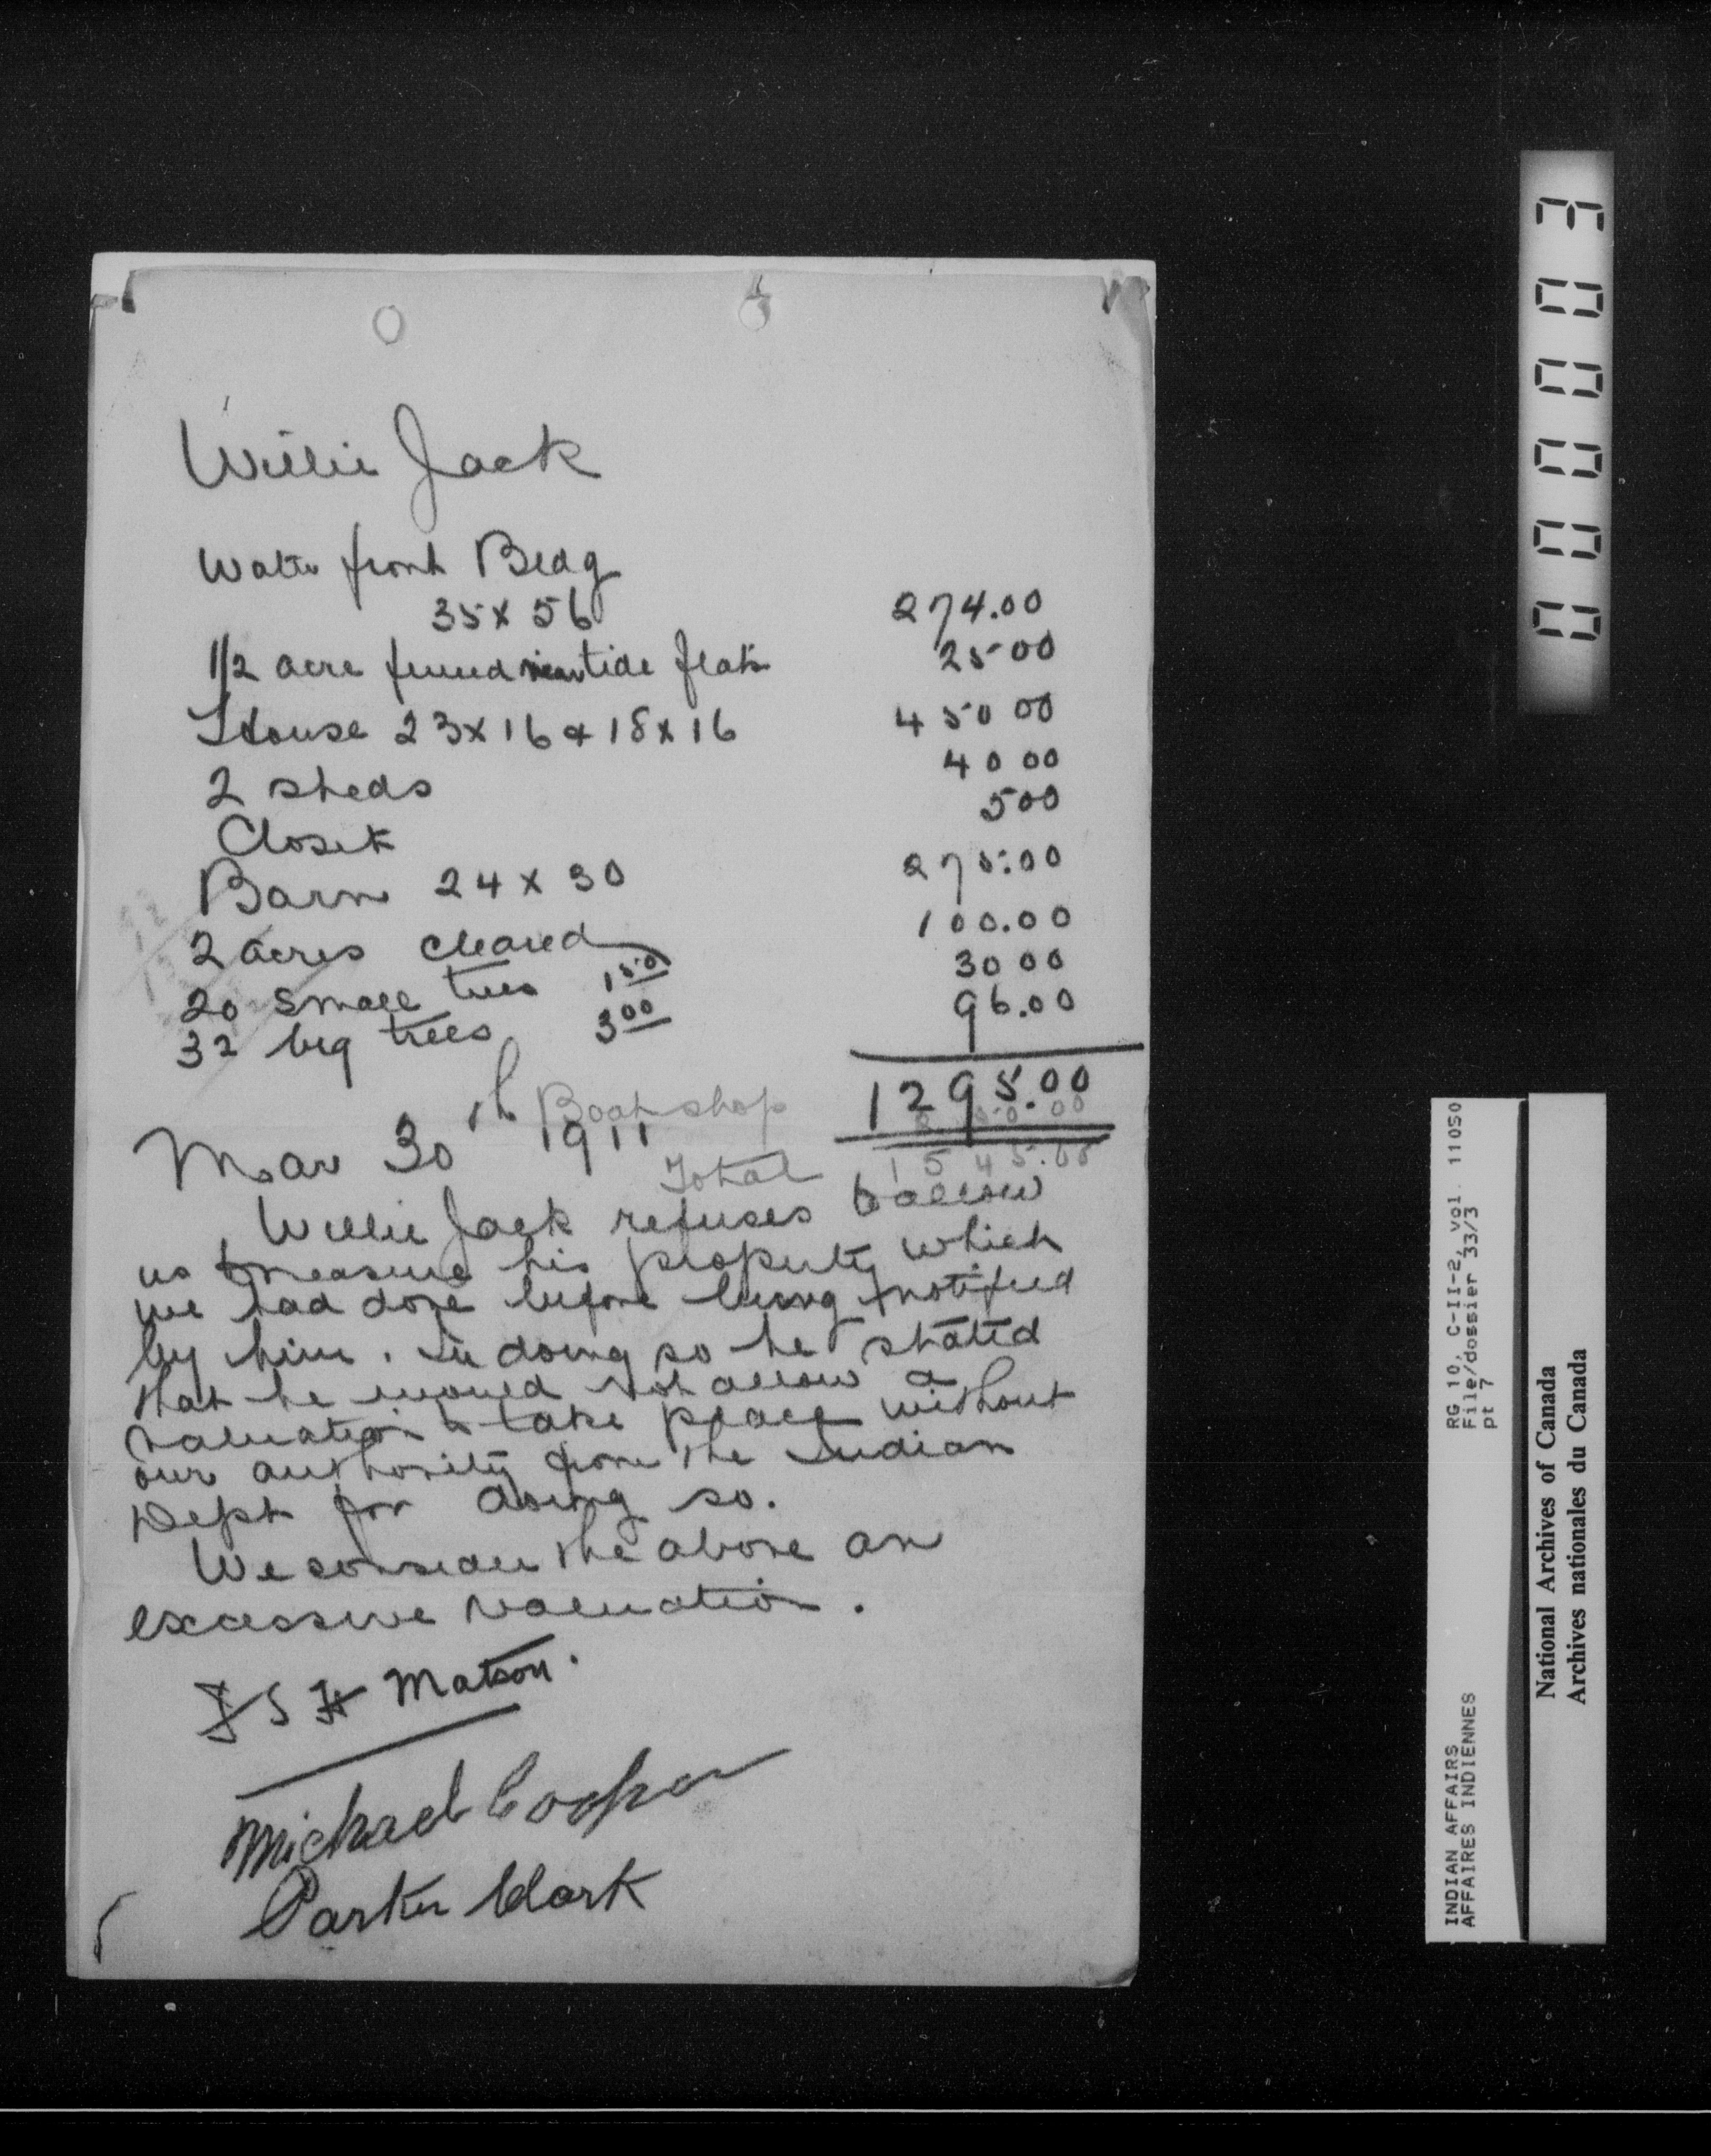 Willie Jack
Water front Bldg
35 x 56 274.00
1/2 acre fenced near tide flats 25 00
House 23 x 16 & 18 x 16 450 00
2 sheds 40 00
Closet 5 00
Barn 24 x 30 275.00
2 acres cleared 100.00
20 small trees 1 50 30 00
32 big trees 3 00 96.00
1295.00
Boat shop 250 00
Mar 30th 1911
Total 1545.00
Willie Jack refuses to allow
us to measure his property which
we had done before being notified
by him. In doing so he stated
that he would not allow a
valuation to take place without
our authority from the Indian
Dept for doing so.
We consider the above an
excessive valuation.
J S H Matson.
Michael Cooper
Parker Clark
000003
INDIAN AFFAIRS RG 10, C-II-2, vol. 11050
AFFAIRES INDIENNES File/dossier 33/3
pt 7
National Archives of Canada
Archives nationales du Canada